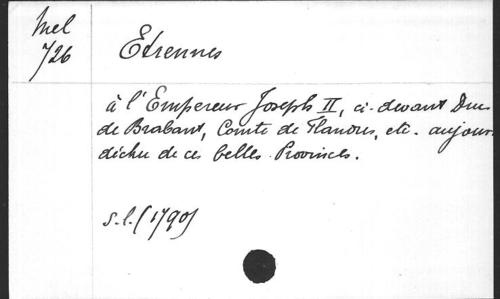 Mel
726
Etrennes
à l'Empereur Joseph II, ci-devant Duc
de Brabant, Comte de Flandres, etc. aujour
déchu de ces belles Provinces.
s.l. (1790)